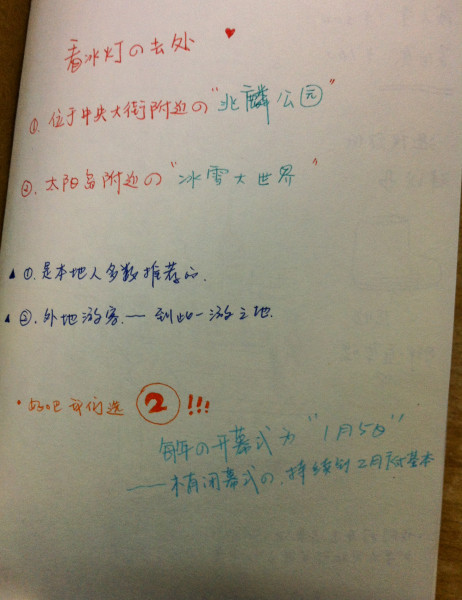 看冰灯の去处 ♥
①. 位于中央大街附近の“兆麟公园”
②. 太阳岛附近の“冰雪大世界”
▲ ①. 是本地人多数推荐品.
▲ ②. 外地游客.— 到此一游之地.
• 好吧 我们选 ② !!!
每年の开幕式为“1月5日”
——木有闭幕式の. 持续到2月底基本